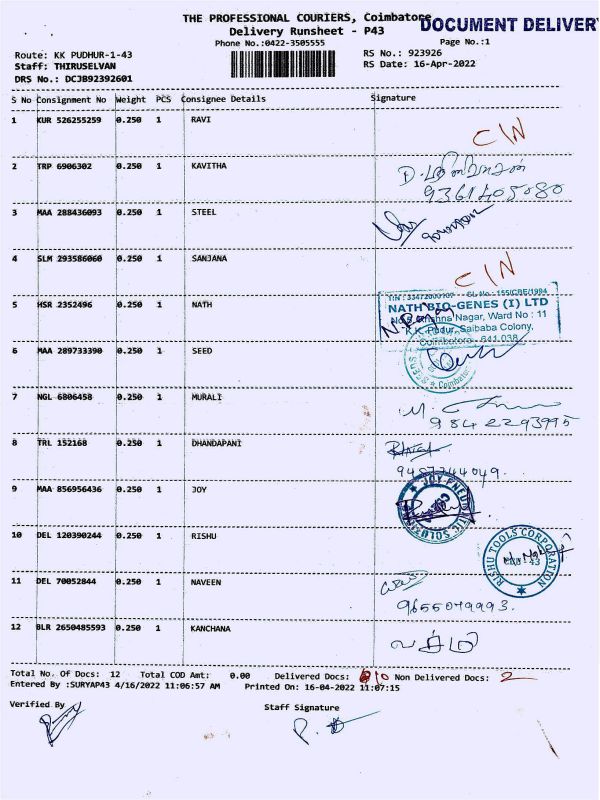 THE PROFESSIONAL COURIERS, Coimbatore
DOCUMENT DELIVERY
Delivery Runsheet - P43
Phone No.:0422-3505555
Page No.:1
Route: KK PUDHUR-1-43
RS No.: 923926
Staff: THIRUSELVAN
RS Date: 16-Apr-2022
DRS No.: DCJB92392601
S No Consignment No Weight PCS Consignee Details Signature
1 KUR 526255259 0.250 1 RAVI
C/N
2 TRP 6906302 0.250 1 KAVITHA
9361405080
3 MAA 288436093 0.250 1 STEEL
4 SLM 293586060 0.250 1 SANJANA
C/N
5 HSR 2352496 0.250 1 NATH
NATH BIO-GENES (I) LTD
Krishna Nagar, Ward No : 11
K.K. Pudur, Saibaba Colony,
Coimbatore - 641 038
6 MAA 289733390 0.250 1 SEED
Coimbatore
7 NGL 6806458 0.250 1 MURALI
9842293995
8 TRL 152168 0.250 1 DHANDAPANI
9487744049.
9 MAA 856956436 0.250 1 JOY
JOY PNEUMATIC SOLUTIONS
10 DEL 120390244 0.250 1 RISHU
RISHU TOOLS CORPORATION
11 DEL 70052844 0.250 1 NAVEEN
9655079993.
12 BLR 2650485593 0.250 1 KANCHANA
Total No. Of Docs: 12 Total COD Amt: 0.00 Delivered Docs: 10 Non Delivered Docs: 2
Entered By :SURYAP43 4/16/2022 11:06:57 AM Printed On: 16-04-2022 11:07:15
Verified By
Staff Signature